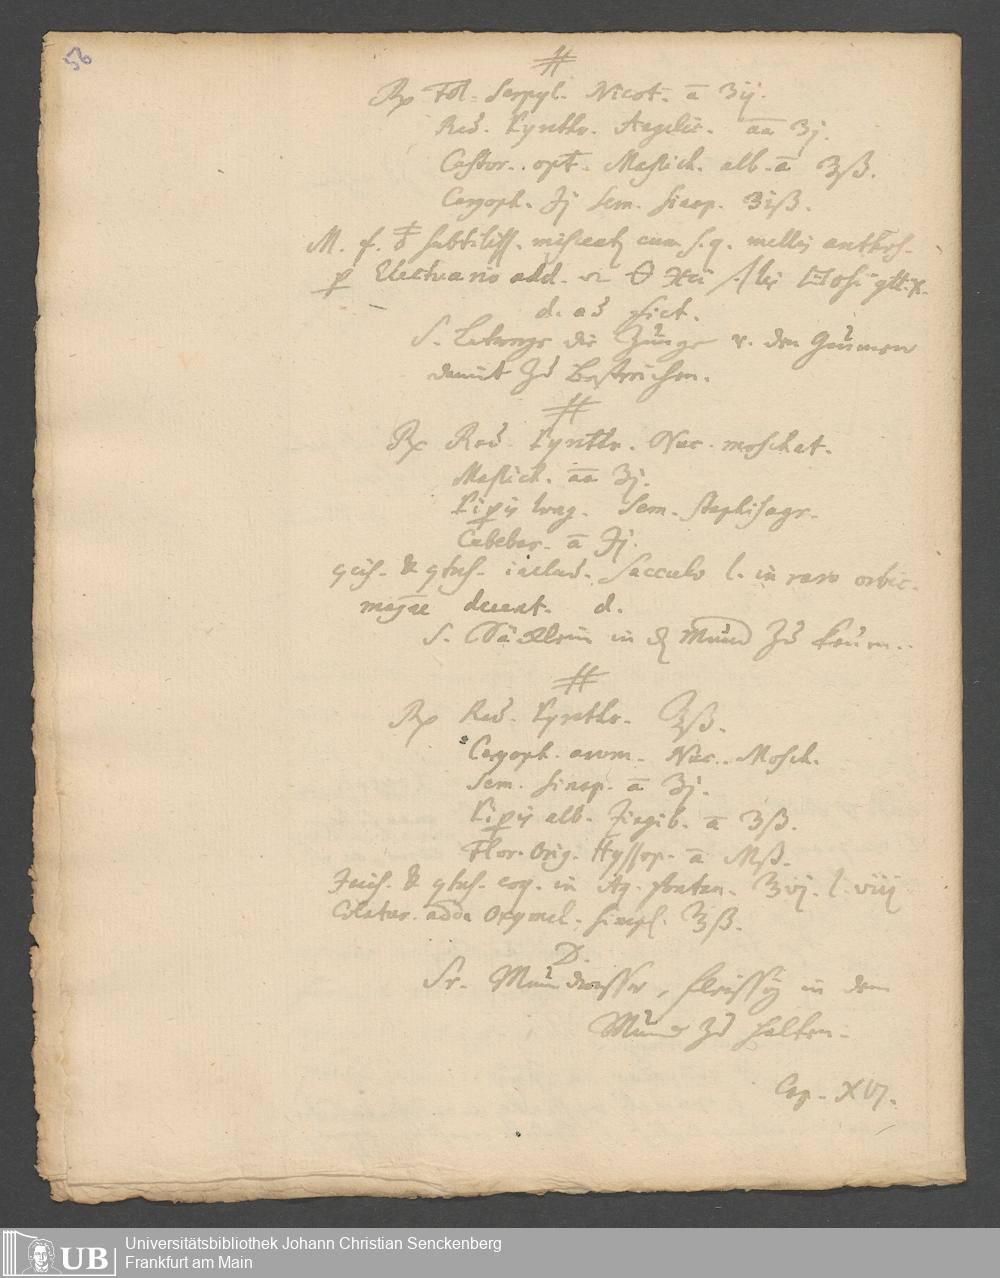 56
#
Rp Fol. Serpyl. Nicot. a ʒij.
Rad. Pyrethr. Angelic. aa ʒj.
Castor. opt. Mastich. alb. a ʒß.
Caryoph. ℈j Sem. Sinap. ʒiß.
M. f. subtiliss. misceat cum s. q. mellis anthos.
Electuario add. gtt. X.
d. ad fict.
S. Latwerge die Zunge v. den Gaumen
damit zu bestreichen.
#
Rp Rad. Pyrethr. Nuc. moschat.
Mastich. aa ʒj.
Piperis long. Sem. Staphisagr.
Cubebar. a ℈j.
includ. Sacculo l. in raro orbic.
magne decent. d.
S. Säcklein in d Mund zu keuen.
#
Rp Rad. Pyrethr. ℥ß.
Caryoph. arom. Nuc. Mosch.
Sem. Sinap. a ʒj.
Piperis alb. Zingib. a ʒß.
Flor. Orig. Hyssop. a Mß.
coq. in Aq. fontan. ℥vj. l. viij
Colatur. adde Oxymel. simpl. ℥ß.
D.
Sr. Mundwasser, fleissig in dem
Mund zu halten.
Cap. XVI.
UB Universitätsbibliothek Johann Christian Senckenberg
Frankfurt am Main